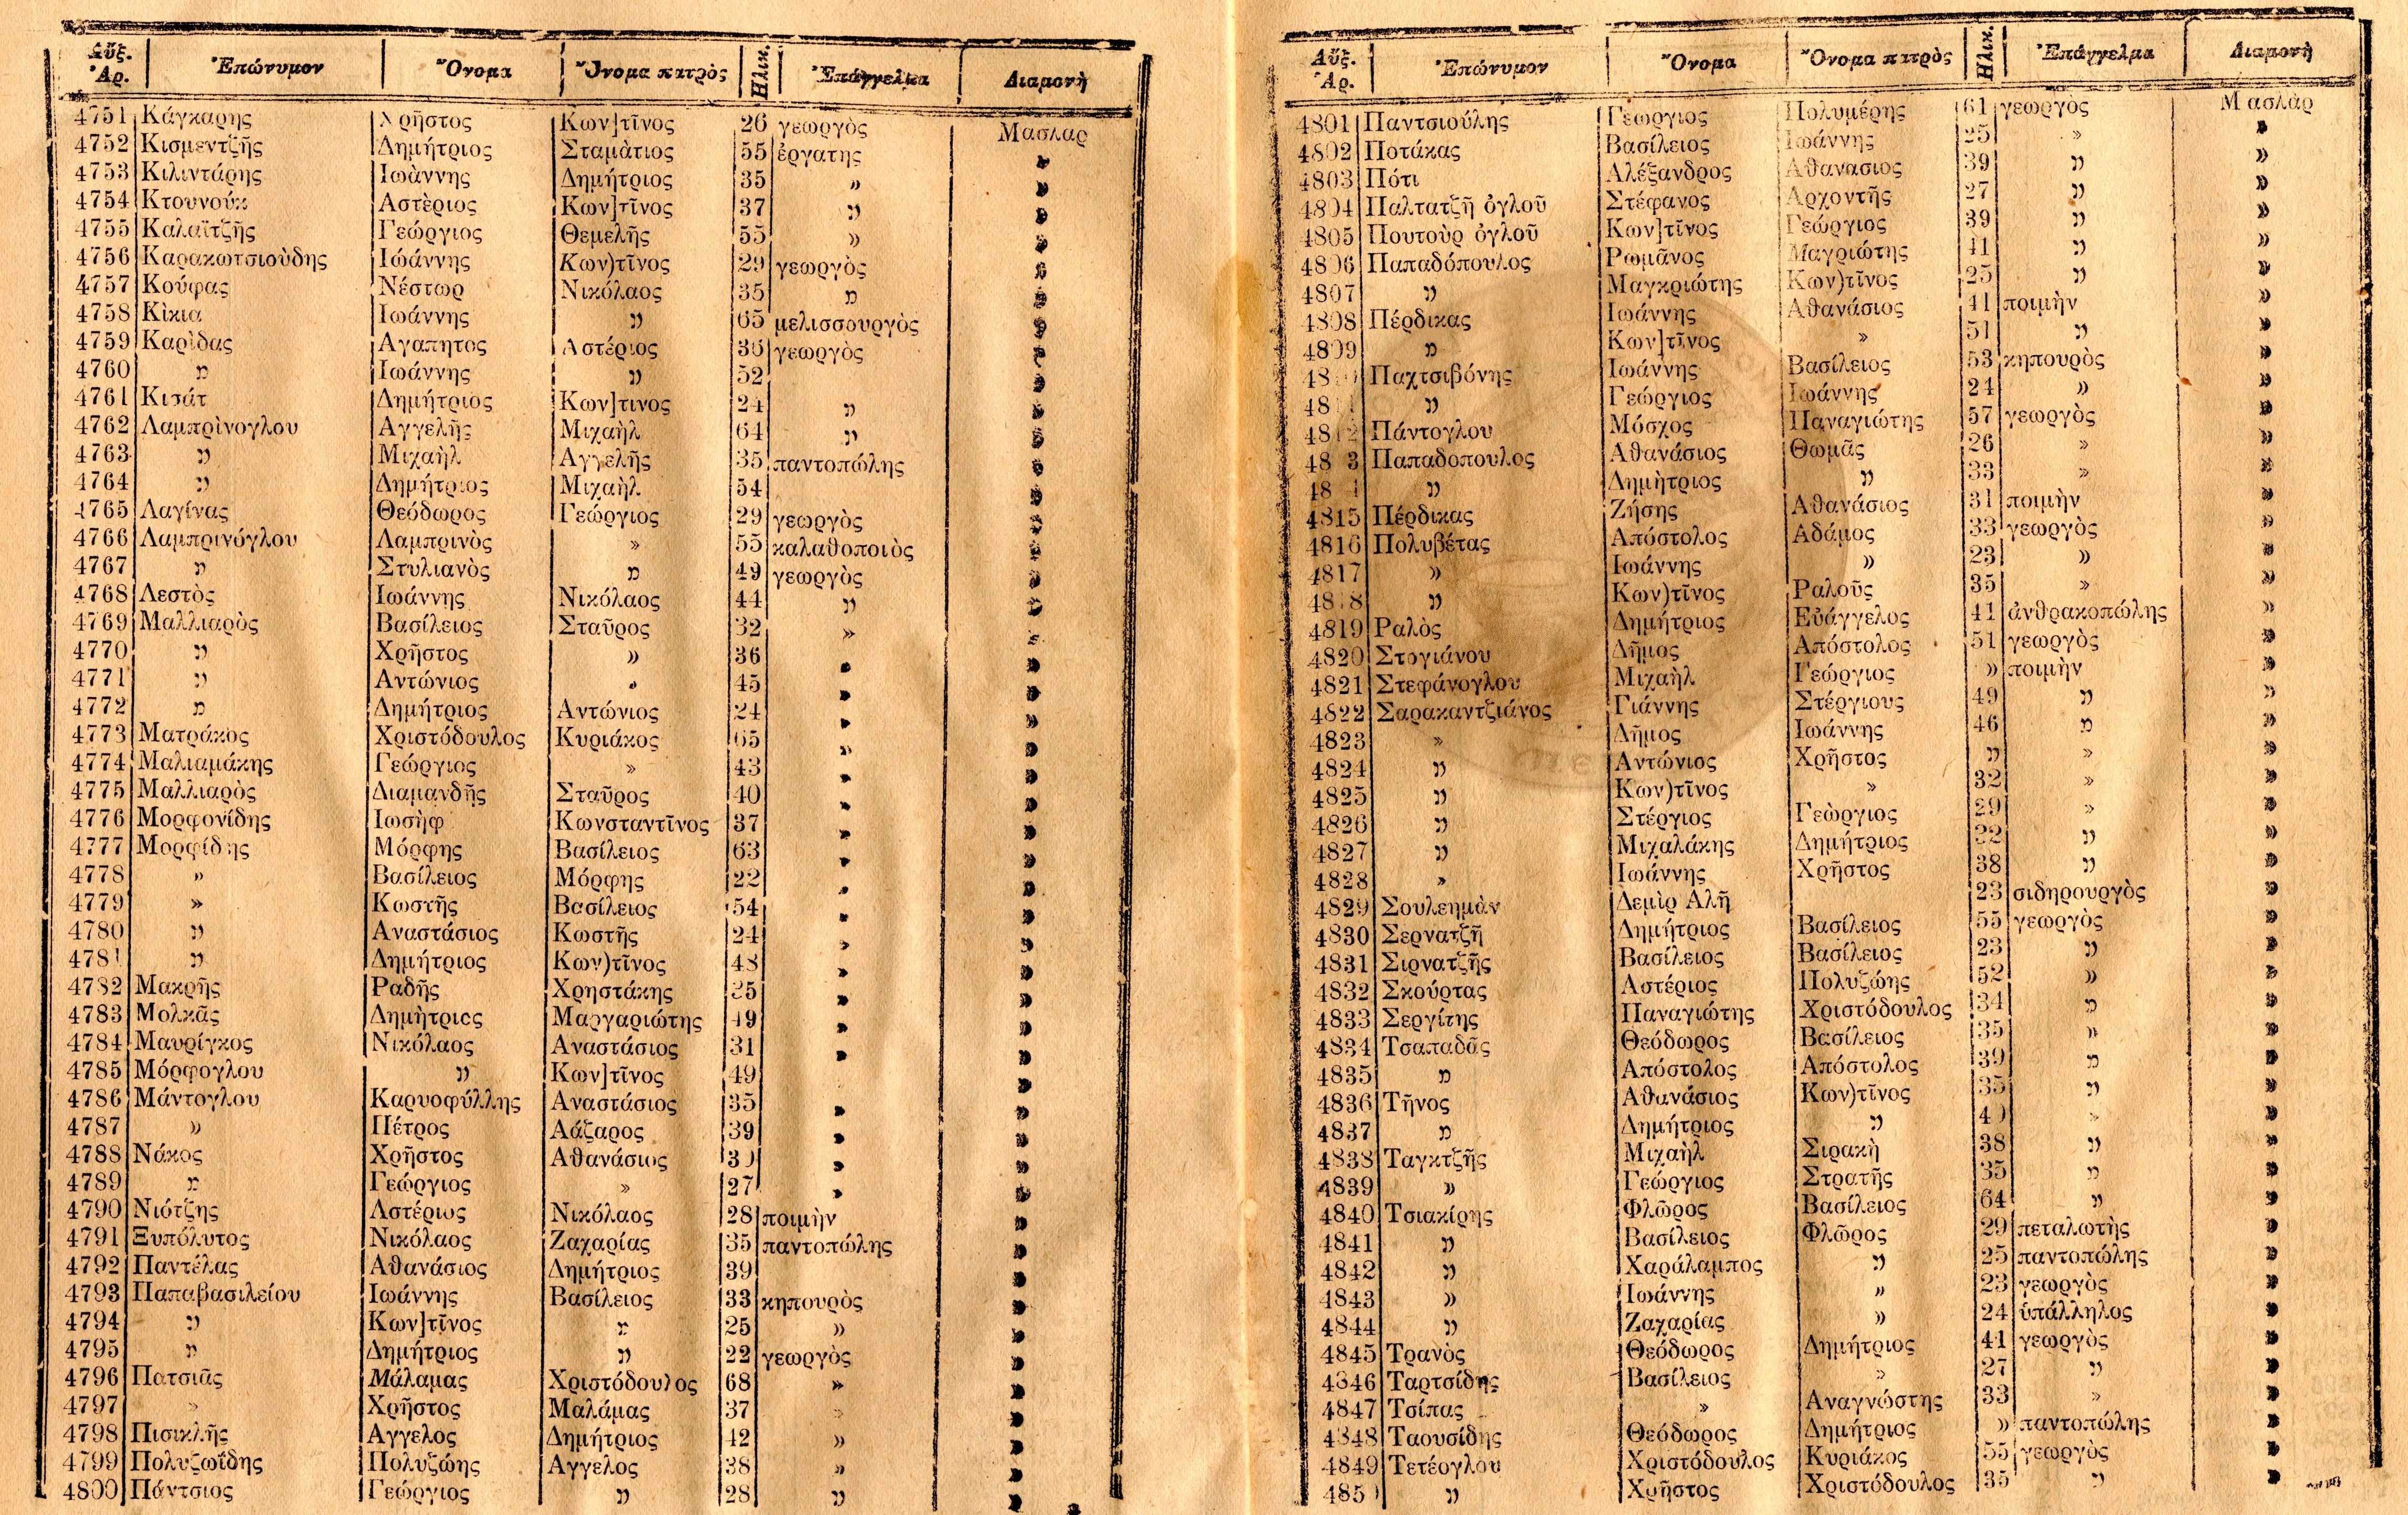 Αὔξ. Ἀρ. Ἐπώνυμον Ὄνομα Ὄνομα πατρὸς Ἡλικ. Ἐπάγγελμα Διαμονὴ
4751 Κάγκαρης Χρῆστος Κων]τῖνος 26 γεωργὸς Μασλαρ
4752 Κισμεντζῆς Δημήτριος Σταμὰτιος 55 ἐργατης »
4753 Κιλιντάρης Ἰωὰννης Δημήτριος 35 » »
4754 Κτουνούκ Αστὲριος Κων]τῖνος 37 » »
4755 Καλαϊτζῆς Γεώργιος Θεμελῆς 55 » »
4756 Καρακωτσιοὺδης Ἰώάννης Κων)τῖνος 29 γεωργὸς »
4757 Κούφας Νέστωρ Νικόλαος 35 » »
4758 Κὶκια Ἰωάννης » 65 μελισσουργὸς »
4759 Καρὶδας Αγαπητος Αστέριος 36 γεωργὸς »
4760 » Ἰωάννης » 52 »
4761 Κισάτ Δημήτριος Κων]τινος 24 » »
4762 Λαμπρὶνογλου Αγγελῆς Μιχαὴλ 64 » »
4763 » Μιχαὴλ Αγγελῆς 35 παντοπώλης »
4764 » Δημήτριος Μιχαὴλ 54 »
4765 Λαγίνας Θεόδωρος Γεώργιος 29 γεωργὸς »
4766 Λαμπρινόγλου Λαμπρινὸς » 55 καλαθοποιὸς »
4767 » Στυλιανὸς » 49 γεωργὸς »
4768 Λεστὸς Ἰωάννης Νικόλαος 44 » »
4769 Μαλλιαρὸς Βασίλειος Σταῦρος 32 » »
4770 » Χρῆστος » 36 » »
4771 » Αντώνιος » 45 » »
4772 » Δημήτριος Αντώνιος 24 » »
4773 Ματράκος Χριστόδουλος Κυριάκος 65 » »
4774 Μαλιαμάκης Γεώργιος » 43 » »
4775 Μαλλιαρὸς Διαμανδῆς Σταῦρος 40 » »
4776 Μορφονίδης Ἰωσὴφ Κωνσταντῖνος 37 » »
4777 Μορφίδης Μόρφης Βασίλειος 63 » »
4778 » Βασίλειος Μόρφης 22 » »
4779 » Κωστῆς Βασίλειος 54 » »
4780 » Αναστάσιος Κωστῆς 24 » »
4781 » Δημήτριος Κων)τῖνος 48 » »
4782 Μακρῆς Ραδῆς Χρηστάκης 35 » »
4783 Μολκᾶς Δημὴτριος Μαργαριώτης 49 » »
4784 Μαυρίγκος Νικόλαος Αναστάσιος 31 » »
4785 Μόρφογλου » Κων]τῖνος 49 »
4786 Μάντογλου Καρυοφύλλης Αναστάσιος 35 » »
4787 » Πέτρος Λάζαρος 39 » »
4788 Νάκος Χρῆστος Αθανάσιος 39 » »
4789 » Γεώργιος » 27 » »
4790 Νιότζης Αστέριος Νικόλαος 28 ποιμὴν »
4791 Ξυπόλυτος Νικόλαος Ζαχαρίας 35 παντοπώλης »
4792 Παντέλας Αθανάσιος Δημήτριος 39 »
4793 Παπαβασιλείου Ἰωάννης Βασίλειος 33 κηπουρὸς »
4794 » Κων]τῖνος » 25 » »
4795 » Δημήτριος » 22 γεωργὸς »
4796 Πατσιᾶς Μάλαμας Χριστόδουλος 68 » »
4797 » Χρῆστος Μαλάμας 37 » »
4798 Πισικλῆς Αγγελος Δημήτριος 42 » »
4799 Πολυζωΐδης Πολυζώης Αγγελος 38 » »
4800 Πάντσιος Γεώργιος » 28 » »
Αὔξ. Ἀρ. Ἐπώνυμον Ὄνομα Ὄνομα πατρὸς Ἡλικ. Ἐπάγγελμα Διαμονὴ
4801 Παντσιούλης Γεώργιος Πολυμέρης 61 γεωργὸς Μασλὰρ
4802 Ποτάκας Βασίλειος Ἰωάννης 25 » »
4803 Πότι Αλέξανδρος Αθανασιος 39 » »
4804 Παλτατζῆ ὀγλοῦ Στέφανος Αρχοντῆς 27 » »
4805 Πουτοὺρ ὀγλοῦ Κων]τῖνος Γεώργιος 39 » »
4806 Παπαδόπουλος Ρωμᾶνος Μαγριώτης 41 » »
4807 » Μαγκριώτης Κων)τῖνος 25 » »
4808 Πέρδικας Ἰωάννης Αθανάσιος 41 ποιμὴν »
4809 » Κων]τῖνος » 51 » »
4810 Παχτσιβόνης Ἰωάννης Βασίλειος 53 κηπουρὸς »
4811 » Γεώργιος Ἰωάννης 24 » »
4812 Πάντογλου Μόσχος Παναγιώτης 57 γεωργὸς »
48 3 Παπαδοπουλος Αθανάσιος Θωμᾶς 26 » »
48 4 » Δημὴτριος » 33 » »
4815 Πέρδικας Ζήσης Αθανάσιος 31 ποιμὴν »
4816 Πολυβέτας Απόστολος Αδάμος 33 γεωργὸς »
4817 » Ἰωάννης » 23 » »
4818 » Κων)τῖνος Ραλοῦς 35 » »
4819 Ραλὸς Δημήτριος Εὐάγγελος 41 ἀνθρακοπώλης »
4820 Στογιάνου Δῆμος Απόστολος 51 γεωργὸς »
4821 Στεφάνογλου Μιχαὴλ Γεώργιος » ποιμὴν »
4822 Σαρακαντζιάνος Γιάννης Στέργιους 49 » »
4823 » Δῆμος Ἰωάννης 46 » »
4824 » Αντώνιος Χρῆστος » » »
4825 » Κων)τῖνος » 32 » »
4826 » Στέργιος Γεὼργιος 29 » »
4827 » Μιχαλάκης Δημήτριος 32 » »
4828 » Ἰωάννης Χρῆστος 38 » »
4829 Σουλεημὰν Δεμὶρ Αλῆ 23 σιδηρουργὸς »
4830 Σερνατζῆ Δημήτριος Βασίλειος 55 γεωργὸς »
4831 Σιρνατζῆς Βασίλειος Βασίλειος 23 » »
4832 Σκούρτας Αστέριος Πολυζώης 52 » »
4833 Σεργίτης Παναγιώτης Χριστόδουλος 34 » »
4834 Τσαπαδᾶς Θεόδωρος Βασίλειος 35 » »
4835 » Απόστολος Απόστολος 39 » »
4836 Τῆνος Αθανάσιος Κων)τῖνος 35 » »
4837 » Δημήτριος » 40 » »
4838 Ταγκτζῆς Μιχαὴλ Σιρακὴ 38 » »
4839 » Γεώργιος Στρατῆς 35 » »
4840 Τσιακίρης Φλῶρος Βασίλειος 64 » »
4841 » Βασίλειος Φλῶρος 29 πεταλωτὴς »
4842 » Χαράλαμπος » 25 παντοπώλης »
4843 » Ἰωάννης » 23 γεωργὸς »
4844 » Ζαχαρίας » 24 ὑπάλληλος »
4845 Τρανὸς Θεόδωρος Δημήτριος 41 γεωργὸς »
4846 Ταρτσίδης Βασίλειος » 27 » »
4847 Τσίπας » Αναγνώστης 33 » »
4848 Ταουσίδης Θεόδωρος Δημήτριος » παντοπώλης »
4849 Τετέογλου Χριστόδουλος Κυριάκος 55 γεωργὸς »
4850 » Χρῆστος Χριστόδουλος 35 » »